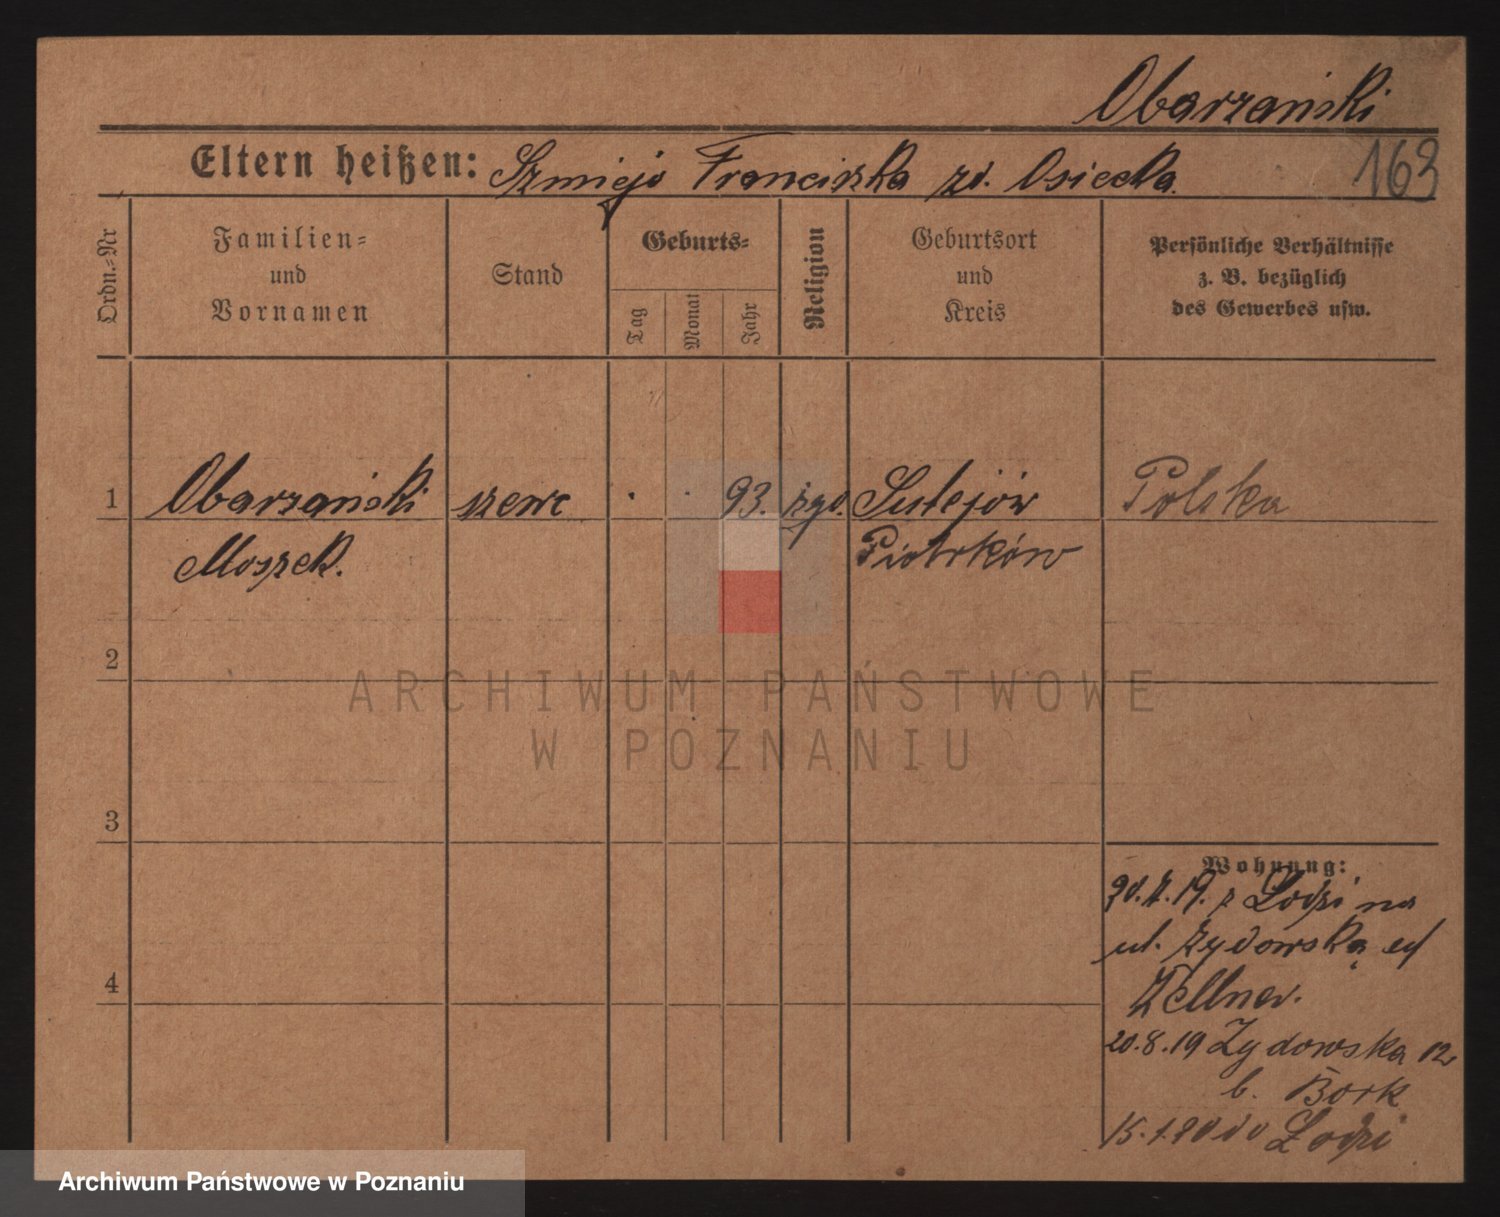 Obarzański
Eltern heißen: Szmiejo Franciszka zd. Osiecka.
163
Ordn.-Nr
Familien-
und
Vornamen
Stand
Geburts-
Tag
Monat
Jahr
Religion
Geburtsort
und
Kreis
Persönliche Verhältnisse
z. B. bezüglich
des Gewerbes usw.
1 Obarzański szewc 93. żyd. Sulejów Polska
Moszek. Piotrków
2
3
4
Wohnung:
19. z Łodzi na
ul. Żydowską
Zellner.
20.8.19 Żydowska 12
b. Bork
15.1.20 do Łodzi
ARCHIWUM PAŃSTWOWE
W POZNANIU
Archiwum Państwowe w Poznaniu